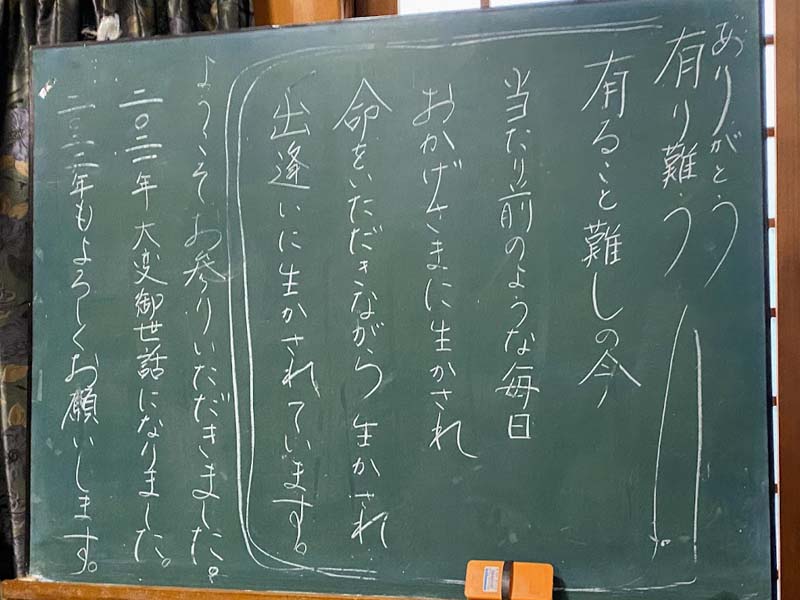 ありがとう
有り難う
有ること難しの今
当たり前のような毎日
おかげさまに生かされ
命をいただきながら生かされ
出逢いに生かされています。
ようこそお参りいただきました。
二〇二一年 大変御世話になりました。
二〇二二年もよろしくお願いします。